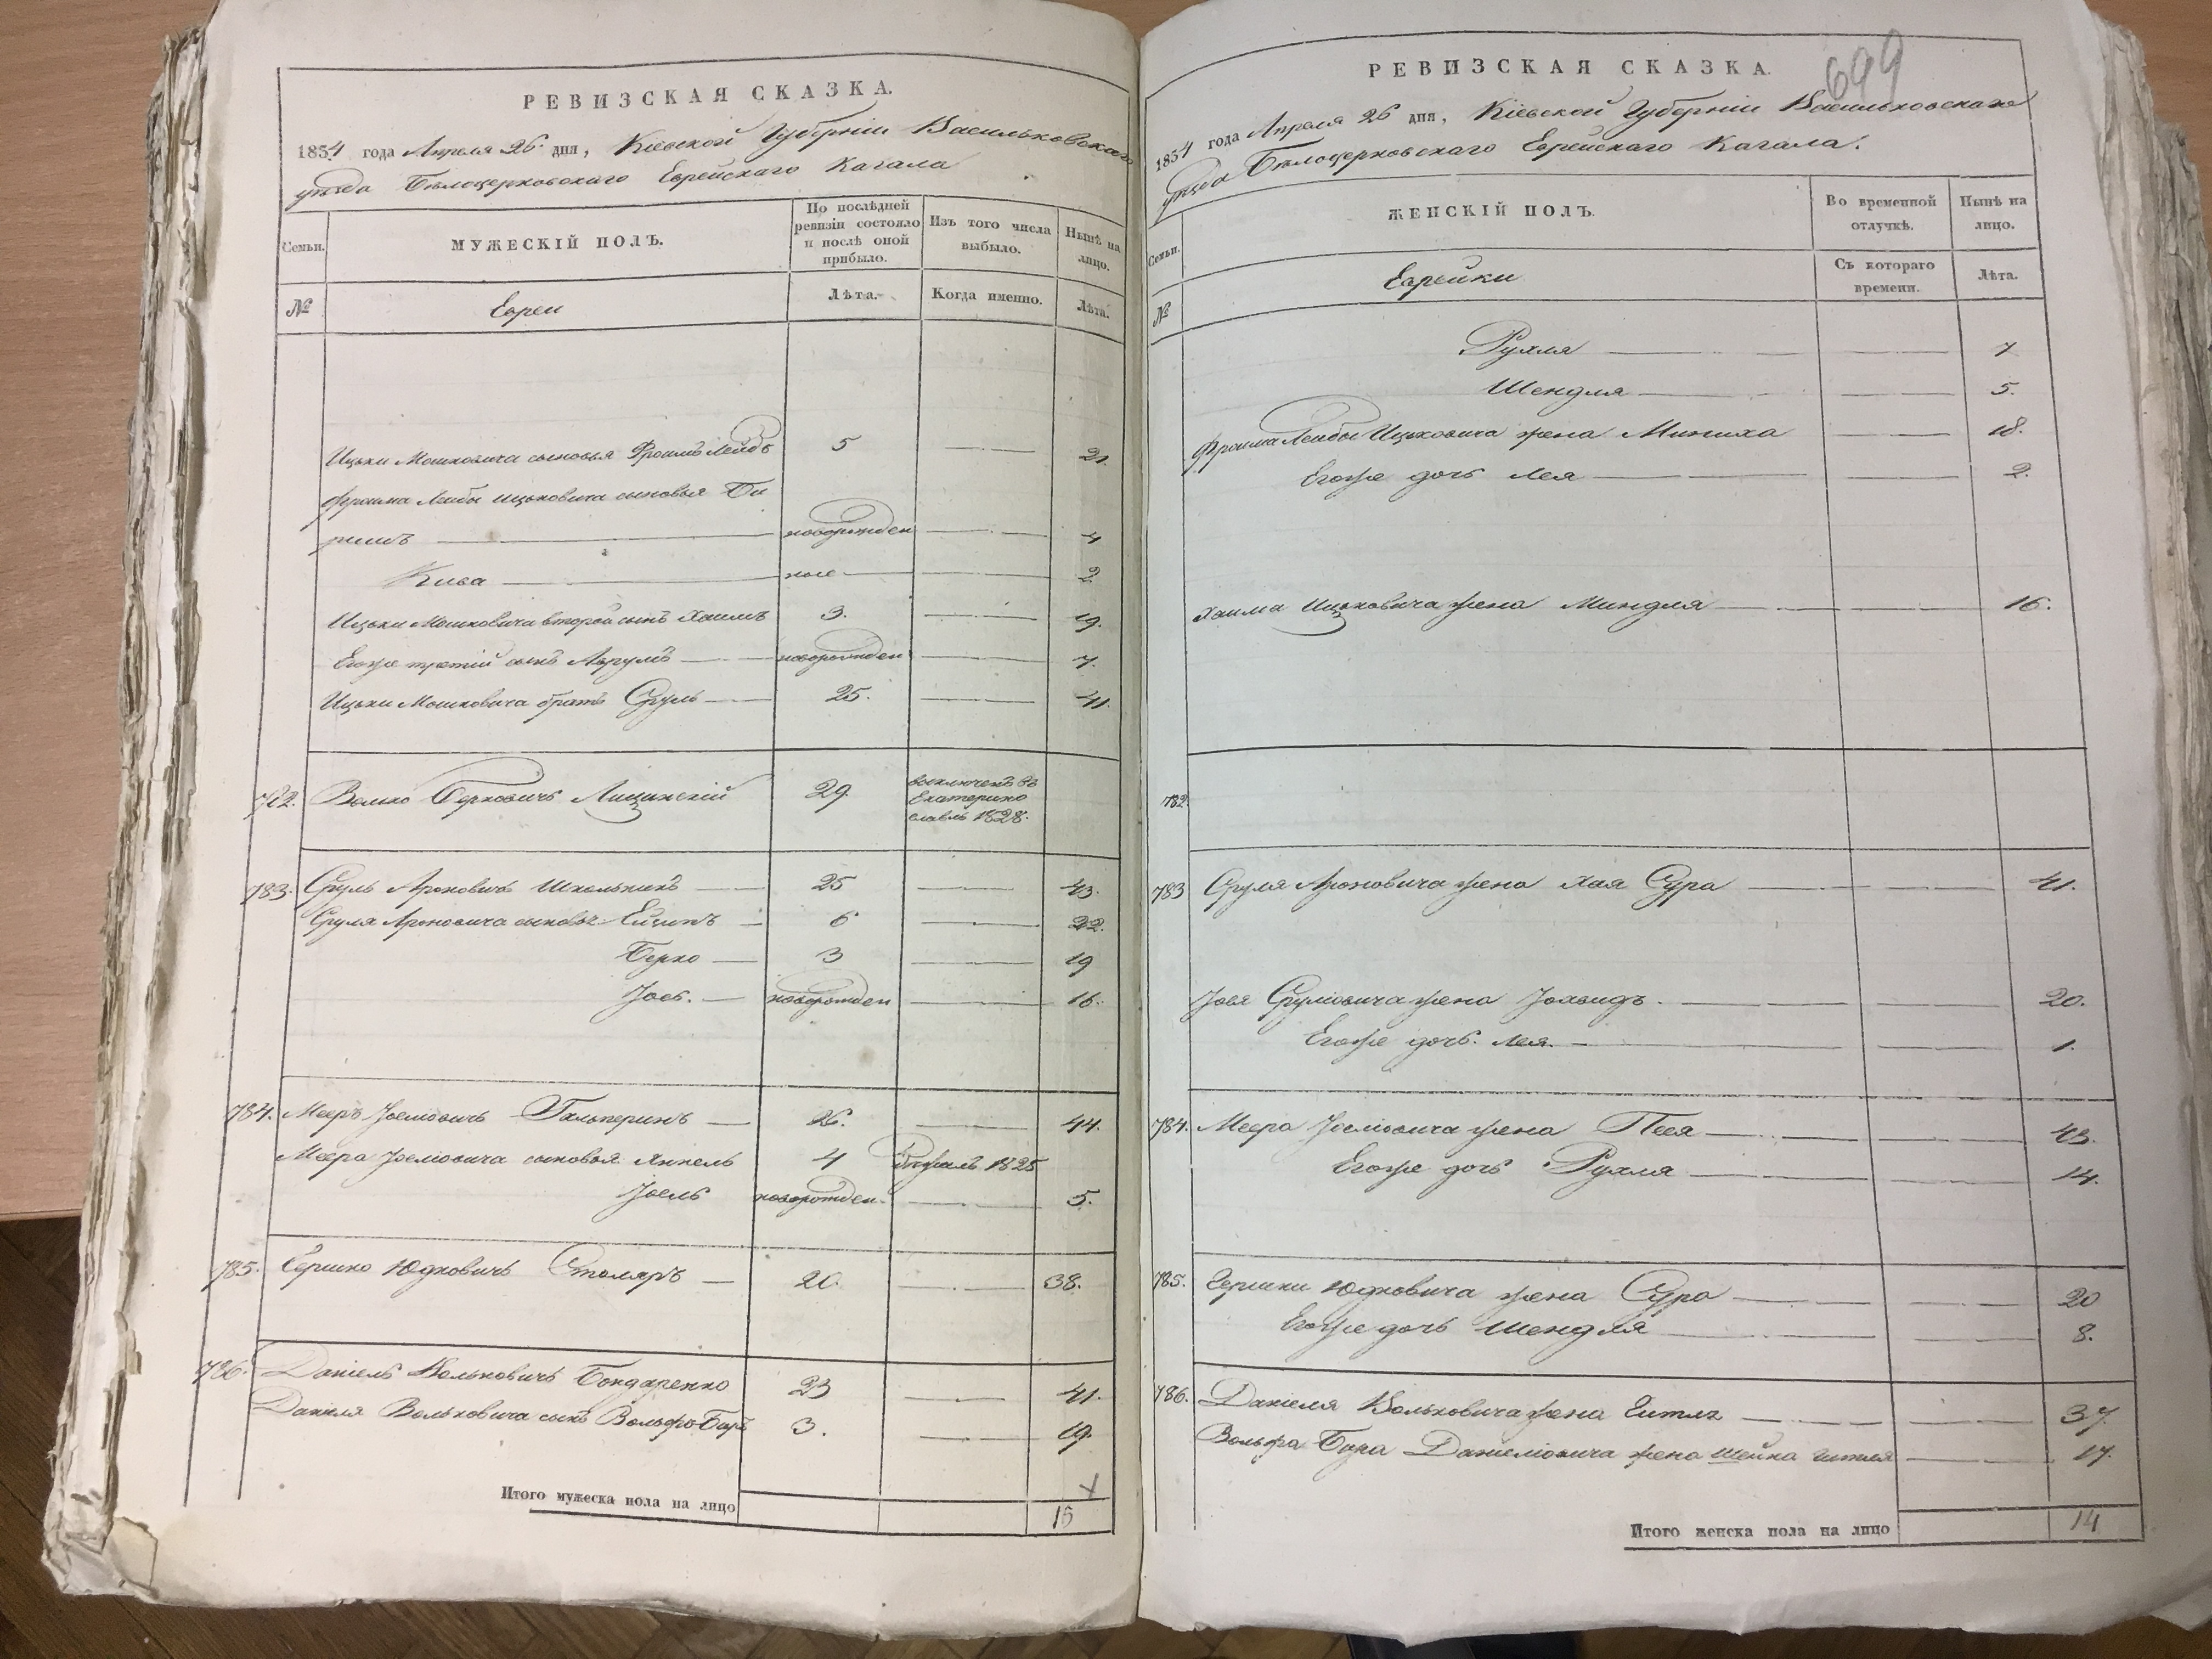 РЕВИЗСКАЯ СКАЗКА.
1834 года Апреля 26 дня, Кіевской Губерніи Васильковскаго
уѣзда Бѣлоцерковскаго Еврейскаго Кагала
Семьи.
МУЖЕСКІЙ ПОЛЪ.
По послѣдней ревизіи состояло и послѣ оной прибыло.
Изъ того числа выбыло.
Нынѣ на лицо.
№
Евреи
Лѣта.
Когда именно.
Лѣта.
Ицьки Мошковича сыновья Фроимъ Лейбъ 5 21
Фроима Лейбы Ицьковича сыновья Би
ришъ новорожден 4
Кива ные 2
Ицьки Мошковича второй сынъ Хаимъ 3. 19.
Егоже третій сынъ Аврумъ новорожден 7.
Ицьки Мошковича братъ Сруль 25. 41.
782. Волько Берковичъ 29. выключенъ въ
Екатерино
славль 1828.
783. Сруль Ароновичъ Школьникъ 25 43.
Сруля Ароновича сыновья 6 22.
Берко 3 19
Іось. новорожден 16.
784. Мееръ Іосіовичъ Гальперинъ 26. 44.
Меера Іосіовича сыновья Янкель 4 бѣжалъ 1825
Іоель новорожден. 5.
785. Гершко Юдковичъ Столяръ 20. 38.
786. Даніель Вольковичъ Бондаренко 23 41.
Даніеля Вольковича сынъ Вольфъ Беръ 3. 19.
Итого мужеска пола на лицо 15
РЕВИЗСКАЯ СКАЗКА.
699
1834 года Апреля 26 дня, Кіевской Губерніи Васильковскаго
уѣзда Бѣлоцерковскаго Еврейскаго Кагала.
Семьи.
ЖЕНСКІЙ ПОЛЪ.
Во временной отлучкѣ.
Нынѣ на лицо.
№
Еврейки
Съ котораго времени.
Лѣта.
Рухля 7
Шендля 5.
Фроима Лейбы Ицьковича жена Миниха 18.
Егоже дочь Лея 2.
Хаима Ицьковича жена Миндля 16.
782.
783 Сруля Ароновича жена Хая Сура 41.
Іося Сруліовича жена Іохвидъ. 20.
Егоже дочь. Лея. 1.
784. Меера Іосіовича жена Песя 43.
Егоже дочь Рухля 14.
785. Гершки Юдковича жена Сура 20
Егоже дочь Шендля 8.
786. Даніеля Вольковича жена Гитля 37.
Вольфа Бера Даніеліовича жена Шейна Гитля 17.
Итого женска пола на лицо 14